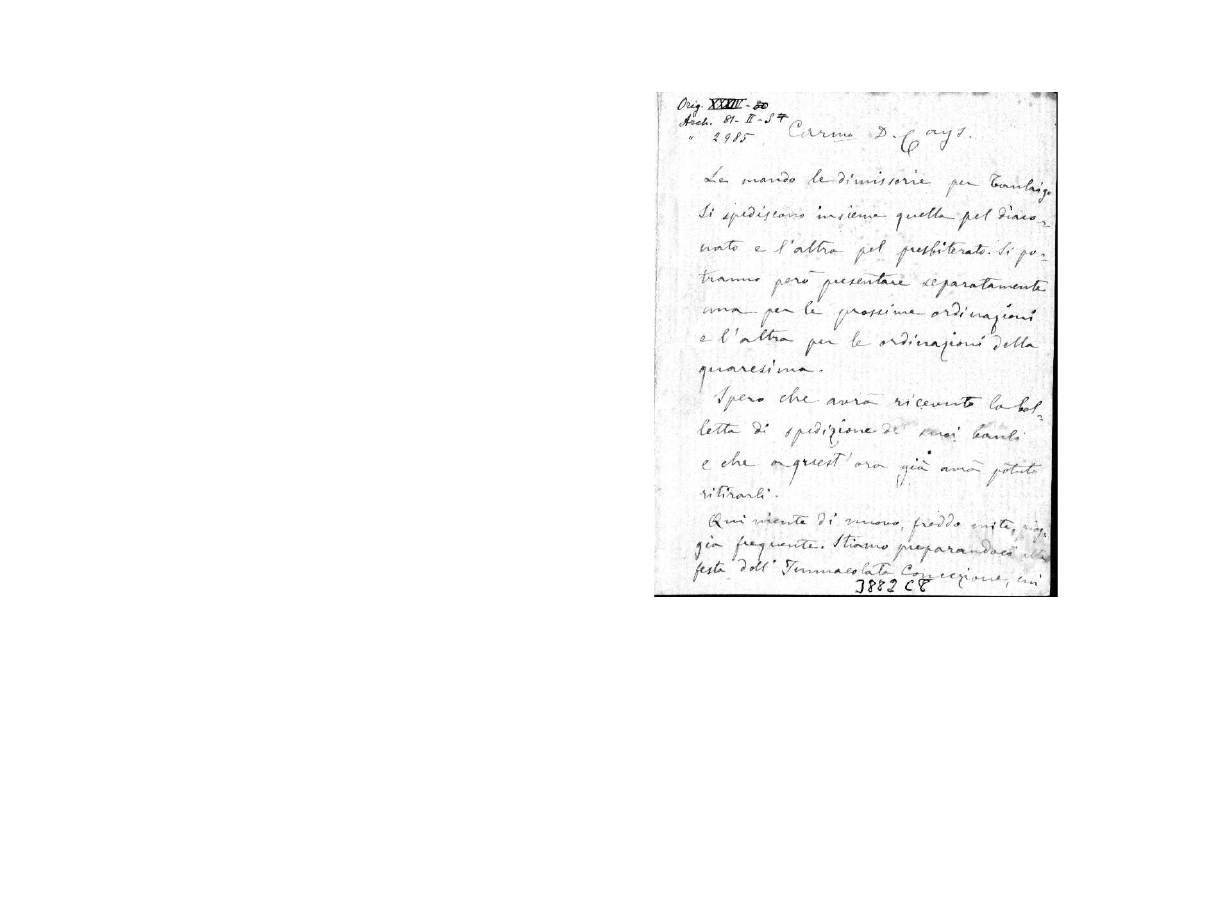 Orig. XXXIV - 80
Arch. 81 - II - S 7
" 2985
Car.mo D. Cays.
Le mando le dimissorie per
Si spediscono insieme quella pel diaco-
nato e l'altra pel presbiterato. Si po-
tranno però presentare separatamente
una per le prossime ordinazioni
e l'altra per le ordinazioni della
quaresima.
Spero che avrà ricevuto la bol-
letta di spedizione de' suoi bauli
e che a quest'ora già avrà potuto
ritirarli.
Qui niente di nuovo, freddo mite, piog-
gia frequente. Stiamo preparandoci alla
festa dell'Immacolata Concezione, cui
3882 CB